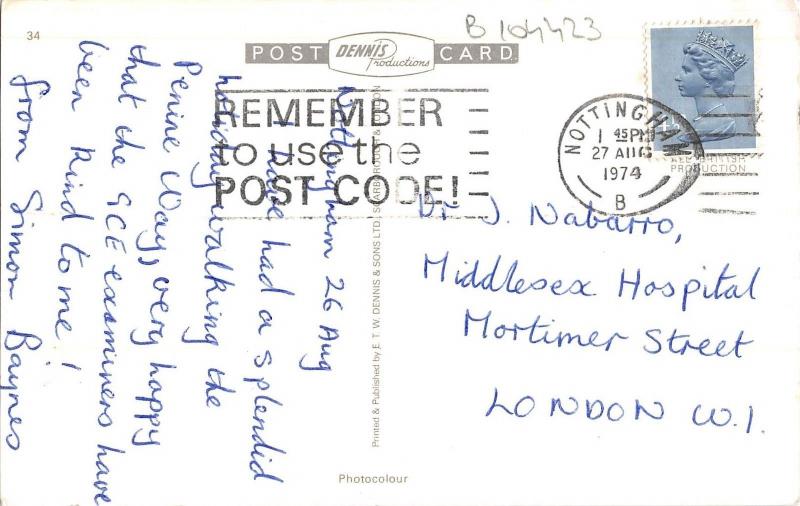 34
B 104423
POST
DENNIS
Productions
CARD
REMEMBER
to use the
POST CODE!
NOTTINGHAM
1 45PM
27 AUG
1974
B
ALL-BRITISH
PRODUCTION
Nottingham 26 Aug
I have had a splendid
holiday walking the
Penine Way, very happy
that the GCE examiners have
been kind to me!
from Simon Baynes
Printed & Published by E. T. W. DENNIS & SONS LTD., SCARBOROUGH &
Dr. J. Nabarro,
Middlesex Hospital
Mortimer Street
LONDON W.1.
Photocolour